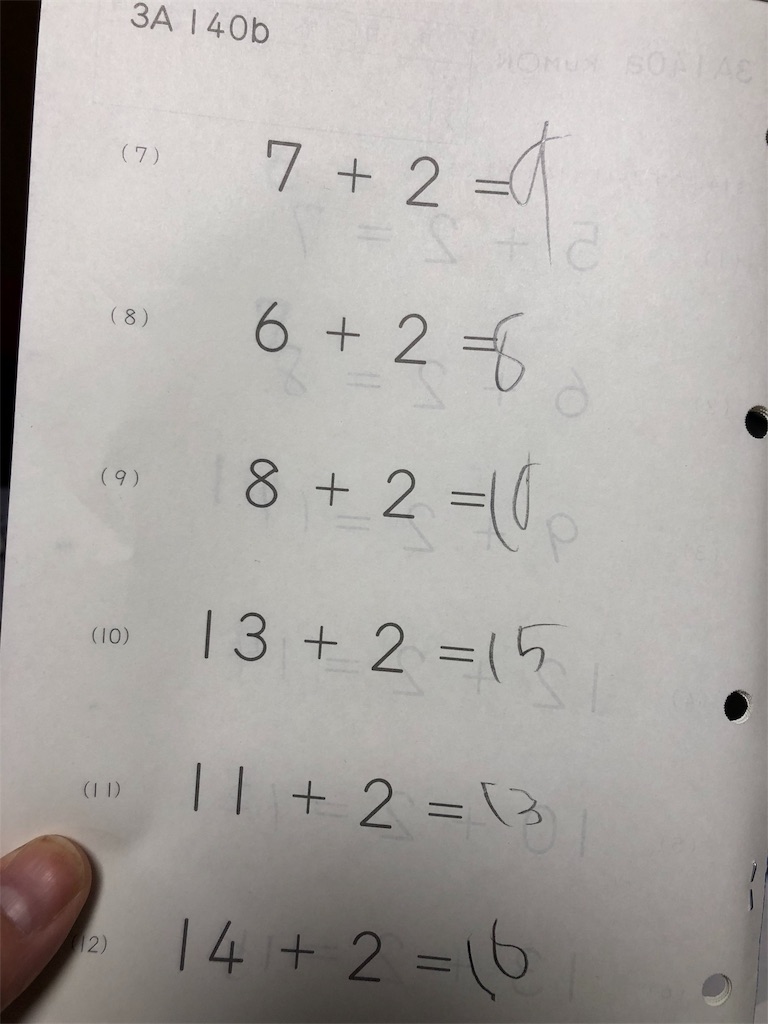 3A 140b
(7) 7 + 2 = 9
(8) 6 + 2 = 8
(9) 8 + 2 = 10
(10) 13 + 2 = 15
(11) 11 + 2 = 13
(12) 14 + 2 = 16